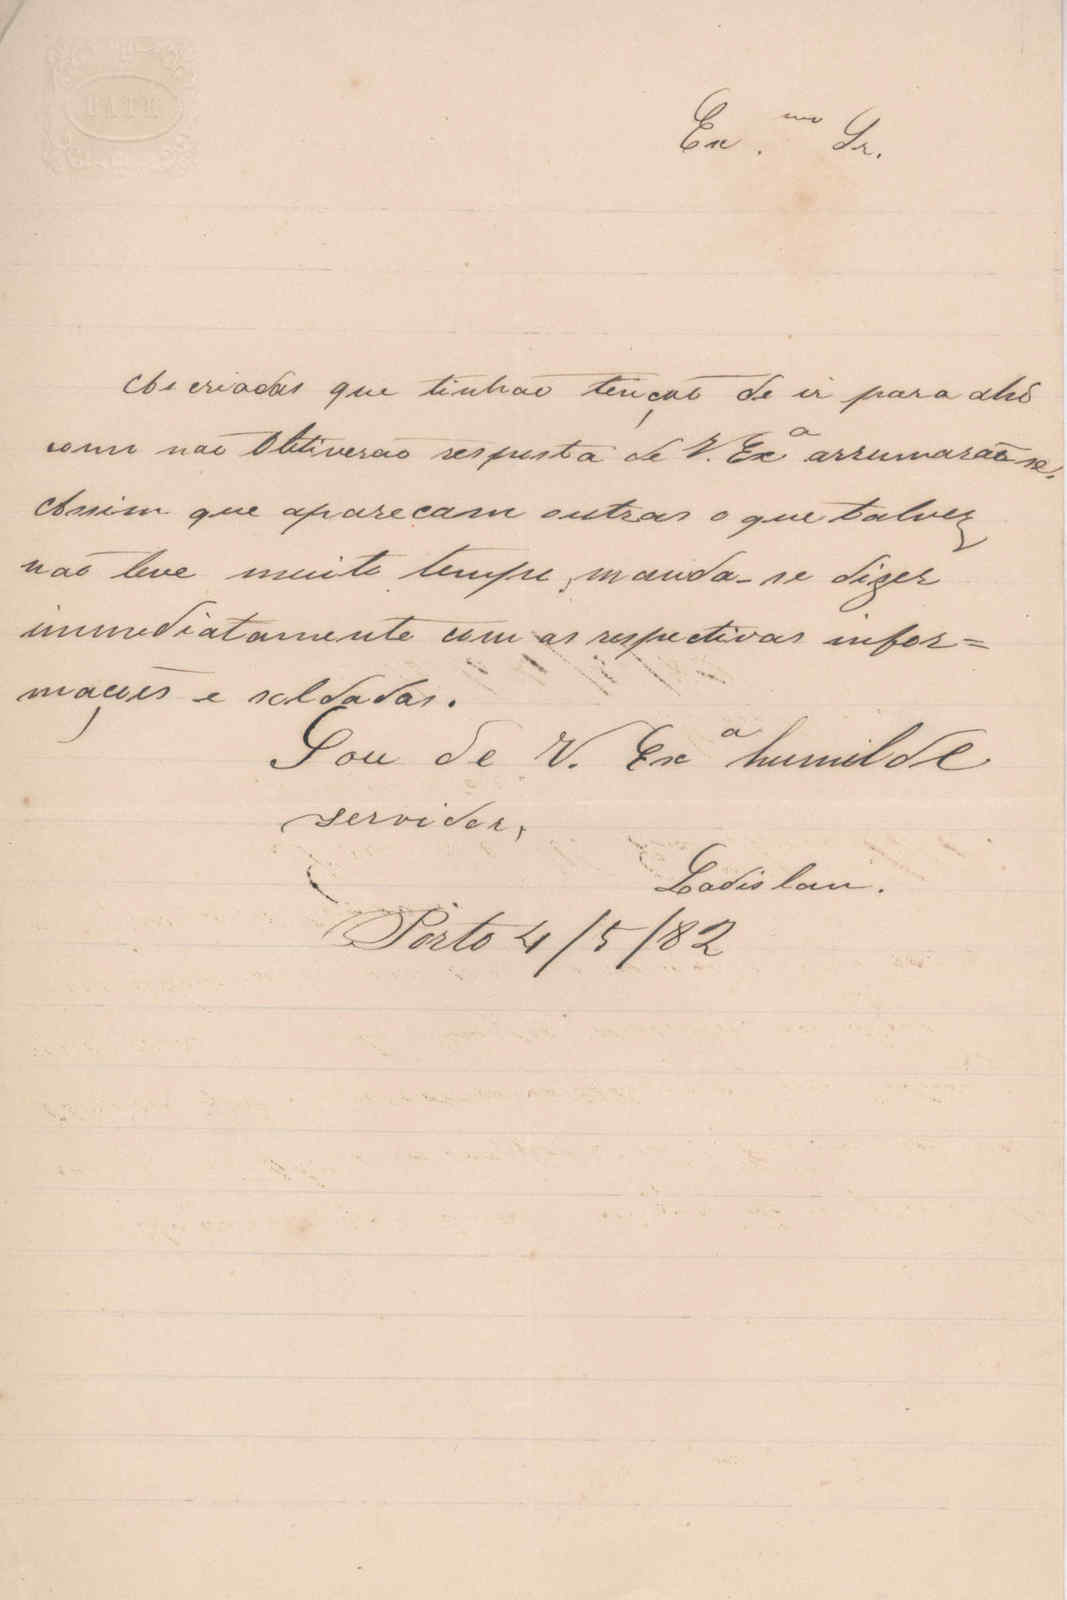 Ex.mo Sr.
As criadas que tinhão tenção de ir para ahi
como não Obtiverão resposta de V. Exa arrumarão-se.
Assim que apareçam outras o que talvez
não leve muito tempo, manda-se dizer
immediatamente com as respectivas infor=
mações e soldadas.
Sou de V. Exa humilde
servidor,
Ladislau.
Porto 4/5/82